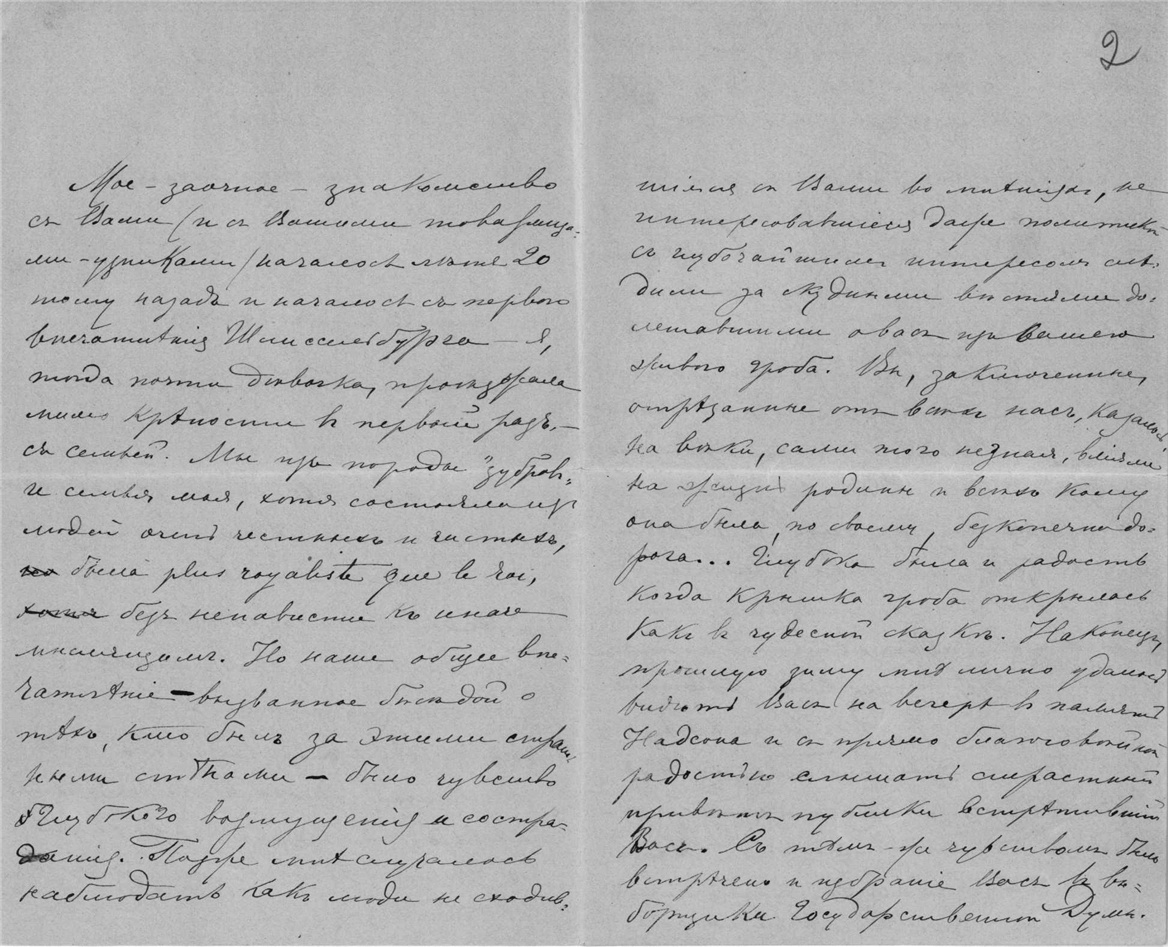 Мое - заочное - знакомство
съ Вами (и съ Вашими товарища-
ми-узниками) началось лѣтъ 20
тому назадъ и началось съ перваго
впечатлѣнія Шлиссельбурга - я,
тогда почти дѣвочка, проѣзжала
мимо крѣпости въ первый разъ, -
съ семьей. Мы изъ породы "зубровъ"
и семья моя, хотя состояла изъ
людей очень честныхъ и чистыхъ,
но была plus royaliste que le roi,
хотя безъ ненависти къ иначе
мыслящимъ. Но наше общее впе-
чатлѣніе - вызванное бесѣдой о
тѣхъ, кто былъ за этими страш-
ными стѣнами - было чувство
глубокого возмущенія и состра-
данія. Позже мнѣ случалось
наблюдать какъ люди не сходив-
2
шіеся съ Вами во мнѣніяхъ, не
интересовавшіеся даже политикой
съ глубочайшимъ интересомъ слѣ-
дили за скудными вѣстями до-
летавшими о васъ изъ вашего
живого гроба. Вы, заключенные,
отрѣзанные отъ всѣхъ насъ, казалось,
на вѣки, сами того не зная, вліяли
на жизнь родины и всѣхъ кому
она была, по своему, безконечно до-
рога... Глубока была и радость
когда крышка гроба открылась
какъ въ чудесной сказкѣ. Наконецъ,
прошлую зиму мнѣ лично удалось
видѣть Васъ на вечерѣ въ память
Надсона и съ прямо благоговѣйной
радостью слышать страстный
привѣтъ публики встрѣтившій
Васъ. Съ тѣмъ-же чувствомъ было
встрѣчено и избраніе Васъ въ вы-
борщики Государственной Думы.